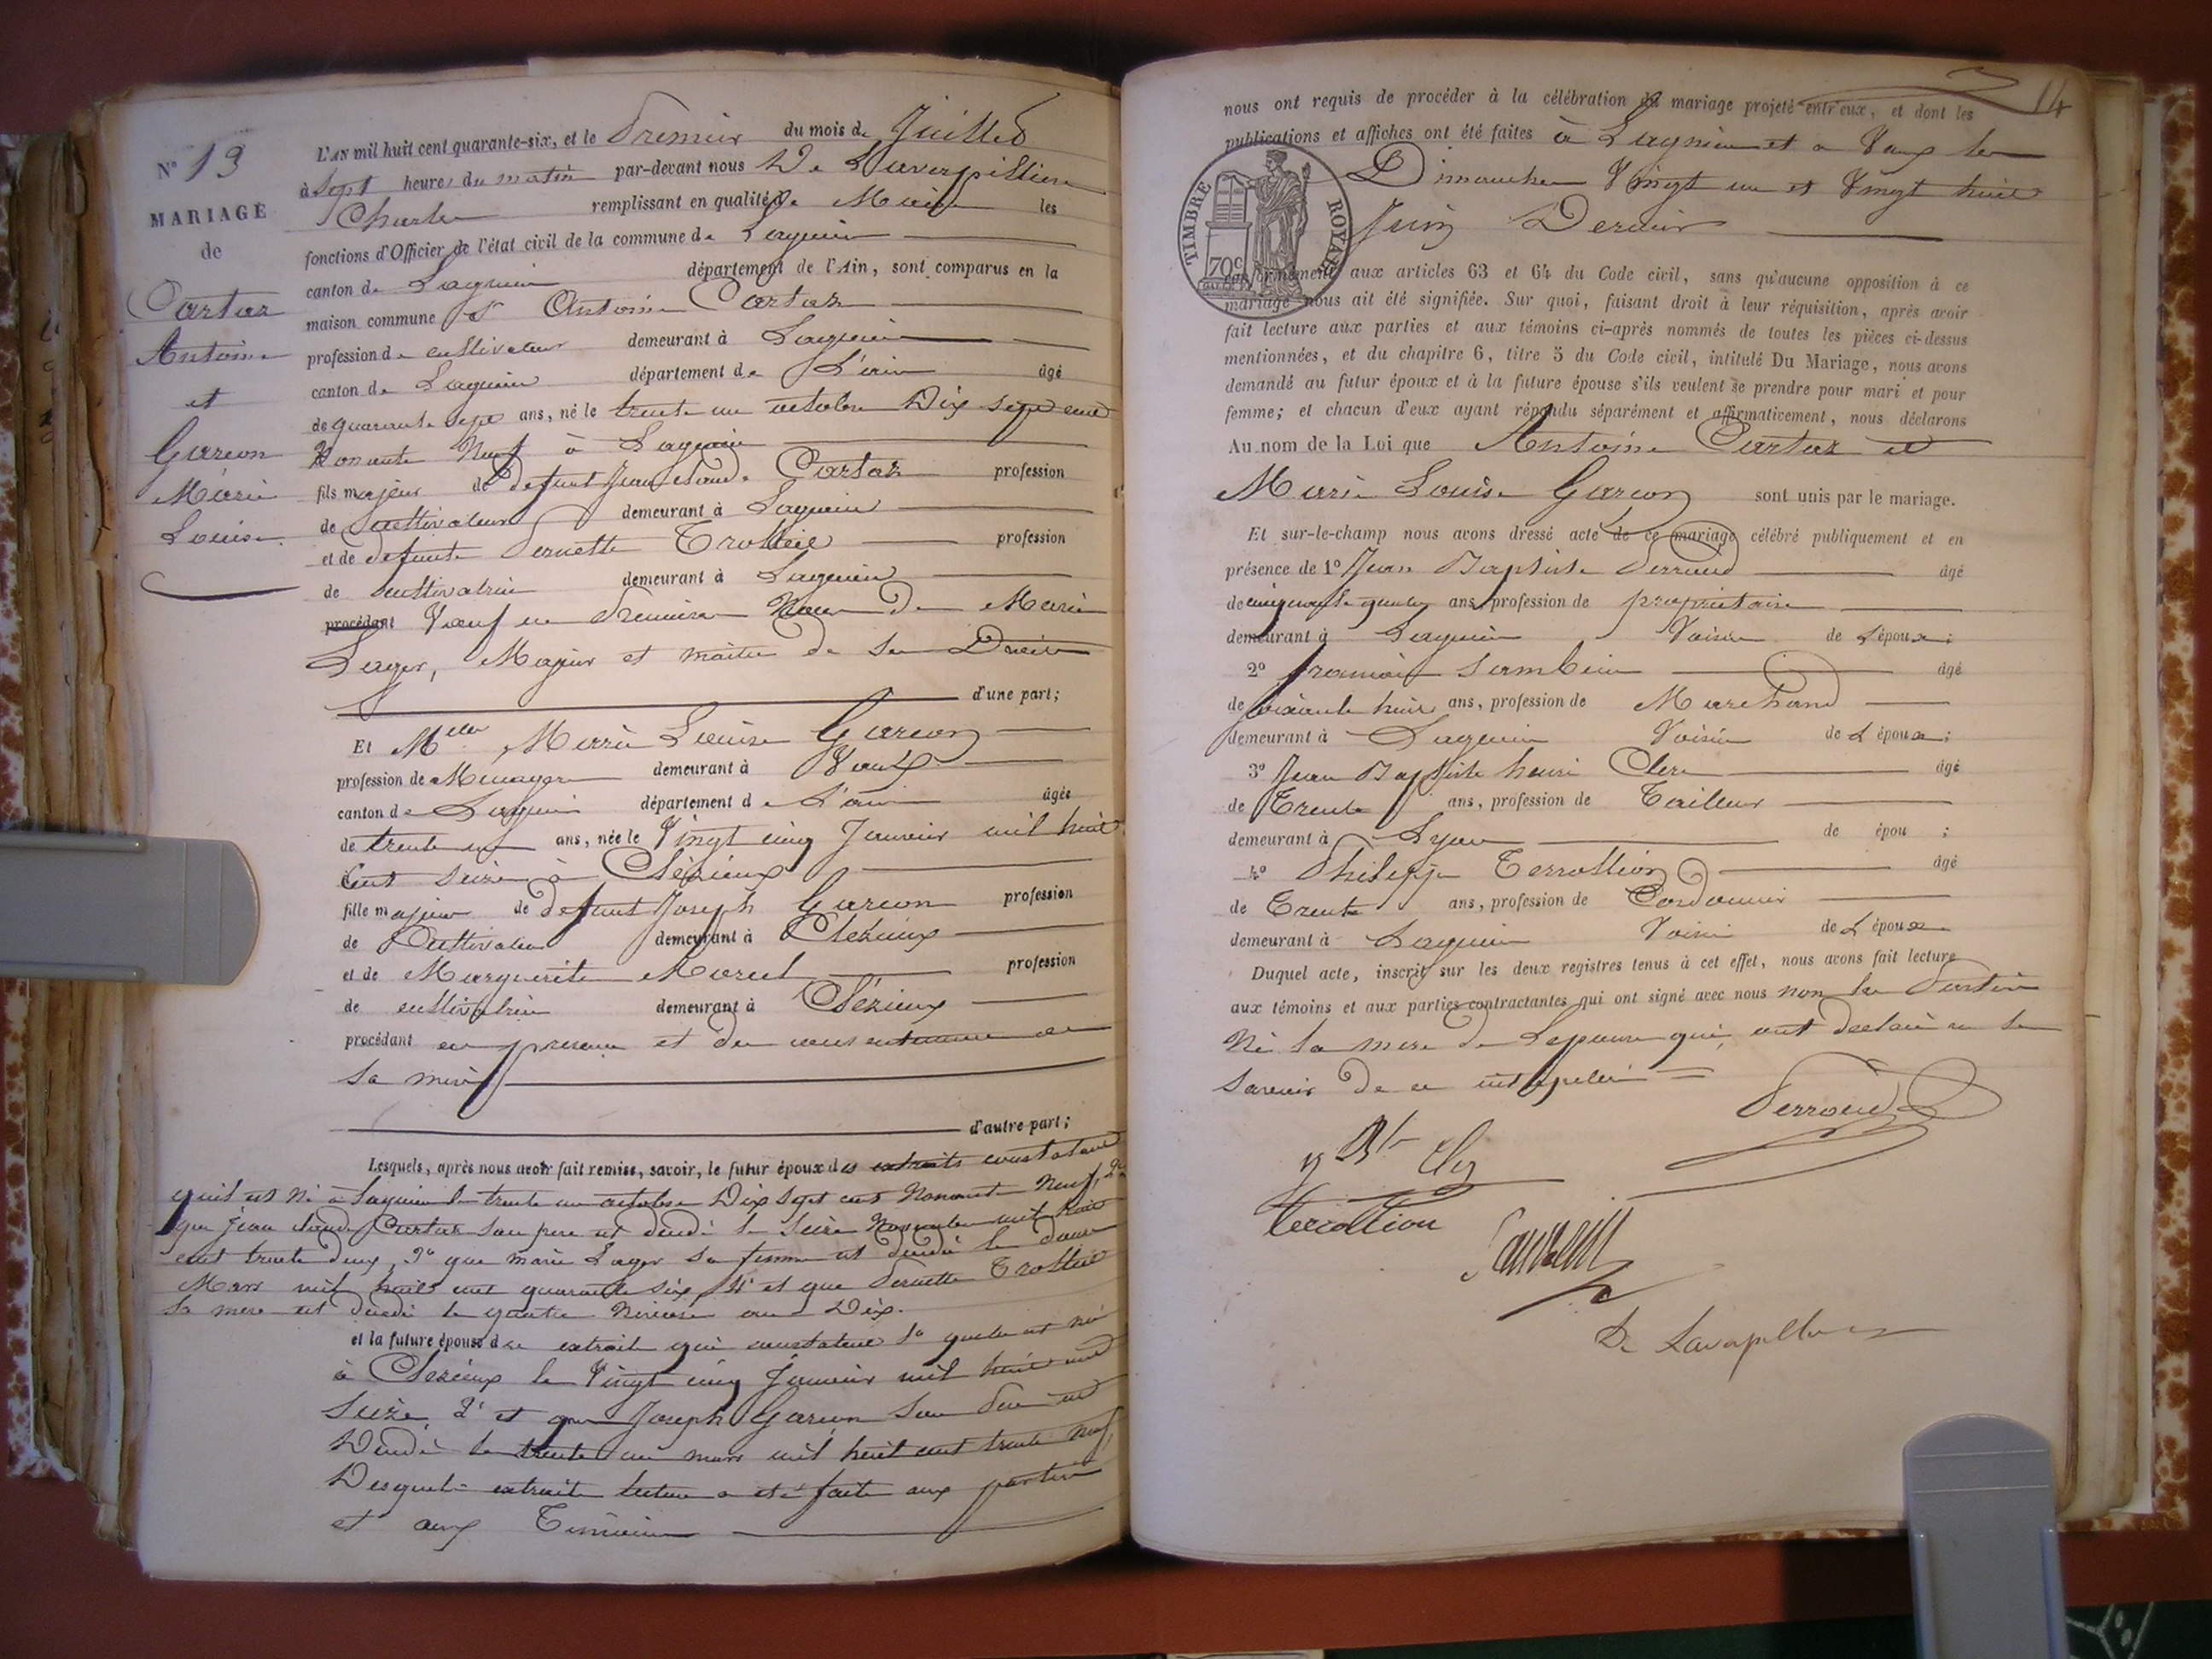 N° 13
MARIAGE
de
Cartaz
Antoine
et
Garçon
Marie
Louise
L'AN mil huit cent quarante-six, et le Premier du mois de Juillet
à Sept heures du matin par-devant nous De Laverpillière
Charles remplissant en qualité de Maire les
fonctions d'Officier de l'état civil de la commune de Lagnieu
canton de Lagnieu département de l'Ain, sont comparus en la
maison commune Sr Antoine Cartaz
profession de cultivateur demeurant à Lagnieu
canton de Lagnieu département de L'ain âgé
de quarante sept ans, né le trente un octobre Dix sept cent
Nonante Neuf à Lagnieu
fils majeur de defunt Jean Claude Cartaz profession
de Cultivateur demeurant à Lagnieu
et de defunte Pernette Trollier profession
de Cultivatrice demeurant à Lagnieu
procédant Veuf en Premieres Noces de Marie
Lager, Majeur et maitre de ses Droits
d'une part;
Et Melle Marie Louise Garçon
profession de Menagere demeurant à Vaux
canton de Lagnieu département de L'ain âgée
de trente ans, née le Vingt cinq Janvier mil huit
Cent seize à Clézieux
fille majeure de defunt Joseph Garcon profession
de Cultivateur demeurant à Clézieux
et de Marguerite Morel profession
de cultivatrice demeurant à Clézieux
procédant en presence et du consentement de
Sa mere
d'autre part;
Lesquels, après nous avoir fait remise, savoir, le futur époux des extraits constatant
quil est Né à Lagnieu le trente un octobre Dix sept cent Nonante Neuf, 2°
que Jean Claude Cartaz son pere est decedé le Seize Novembre mil huit
cent trente deux, 3° que Marie Lager sa femme est decedée le douze
Mars mil huit cent quarante six, 4° et que Pernette Trollier
sa mere est decedé le quatre Nivose an Dix.
et la future épouse des extraits qui constatent 1° quelle est né
à Clezieux le Vingt cinq Janvier mil huit cent
Seize, 2° et que Joseph Garcon Son Pere est
Decedé le trente un mars mil huit cent trente neuf,
Desquels extraits lecture a été faite aux parties
et aux Temoins
14
nous ont requis de procéder à la célébration du mariage projeté entr'eux, et dont les
publications et affiches ont été faites à Lagnieu et a Vaux les
Dimanches Vingt un et Vingt huit
Juin Dernier
TIMBRE ROYAL
70c
conformément aux articles 63 et 64 du Code civil, sans qu'aucune opposition à ce
mariage nous ait été signifiée. Sur quoi, faisant droit à leur réquisition, après avoir
fait lecture aux parties et aux témoins ci-après nommés de toutes les pièces ci-dessus
mentionnées, et du chapitre 6, titre 5 du Code civil, intitulé Du Mariage, nous avons
demandé au futur époux et à la future épouse s'ils veulent se prendre pour mari et pour
femme; et chacun d'eux ayant répondu séparément et affirmativement, nous déclarons
Au nom de la Loi que Antoine Cartaz et
Marie Louise Garcon sont unis par le mariage.
Et sur-le-champ nous avons dressé acte de ce mariage célébré publiquement et en
présence de 1° Jean Baptiste Perroud âgé
de cinquante quatre ans, profession de propriétaire
demeurant à Lagnieu Voisin de L'époux;
2° françois Sambein âgé
de soixante huit ans, profession de Marchand
demeurant à Lagnieu Voisin de L'époux;
3° Jean Baptiste henri Clerc âgé
de Trente ans, profession de Tailleur
demeurant à Lyon de épou ;
4° Philippe Terrollion âgé
de Trente ans, profession de Cordonnier
demeurant à Lagnieu Voisin de L'époux
Duquel acte, inscrit sur les deux registres tenus à cet effet, nous avons fait lecture
aux témoins et aux parties contractantes qui ont signé avec nous non les Parties
Ni la mere de Lepouse qui ont declaré ne le
Savoir de ce interpelés
Perroud
terrollion
Sambein
De Laverpillière